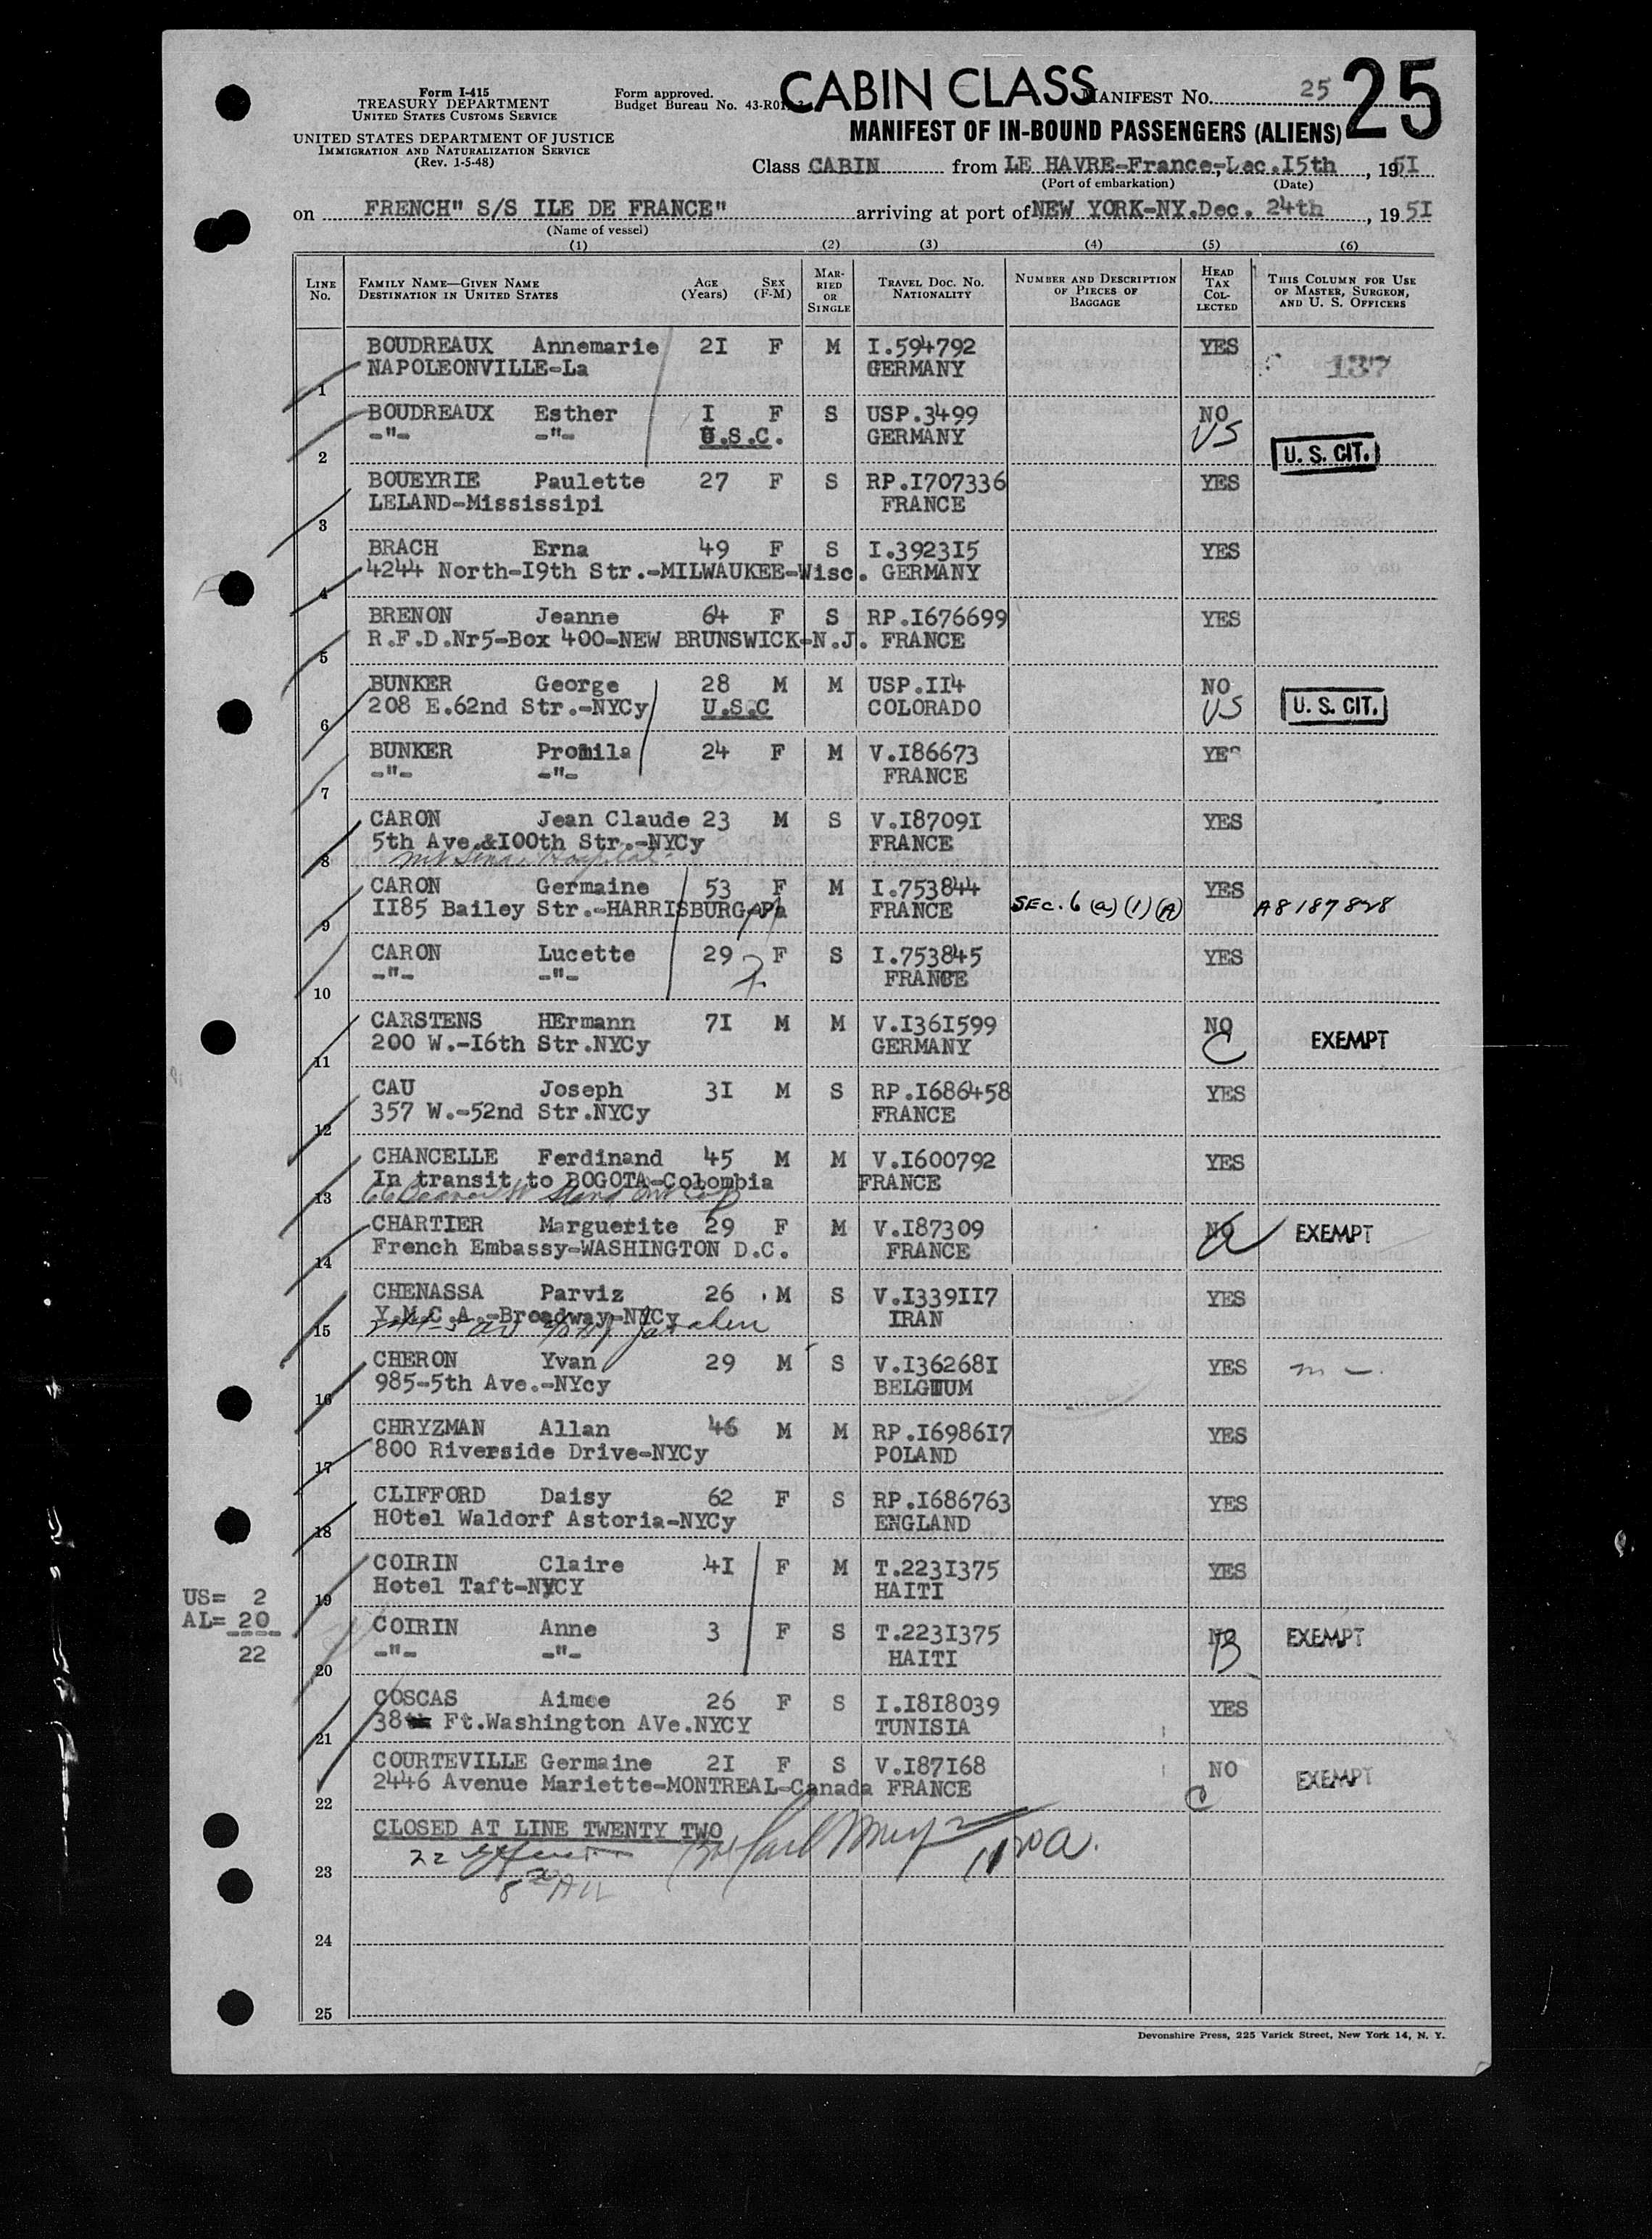 Form I-415
TREASURY DEPARTMENT
UNITED STATES CUSTOMS SERVICE
UNITED STATES DEPARTMENT OF JUSTICE
IMMIGRATION AND NATURALIZATION SERVICE
(Rev. 1-5-48)
Form approved.
Budget Bureau No.
CABIN CLASS
MANIFEST NO. 25
25
MANIFEST OF IN-BOUND PASSENGERS (ALIENS)
Class CABIN from LE HAVRE-France, Dec.I5th, 195I
(Port of embarkation) (Date)
on FRENCH" S/S ILE DE FRANCE" arriving at port of NEW YORK-NY. Dec. 24th, 195I
(Name of vessel)
(1) (2) (3) (4) (5) (6)
LINE No. FAMILY NAME—GIVEN NAME DESTINATION IN UNITED STATES AGE (Years) SEX (F-M) MARRIED OR SINGLE TRAVEL DOC. NO. NATIONALITY NUMBER AND DESCRIPTION OF PIECES OF BAGGAGE HEAD TAX COLLECTED THIS COLUMN FOR USE OF MASTER, SURGEON, AND U. S. OFFICERS
BOUDREAUX Annemarie 2I F M I.594792 YES 137
1 NAPOLEONVILLE-La GERMANY
BOUDREAUX Esther I F S USP.3499 NO US
2 -"- -"- U.S.C. GERMANY U. S. CIT.
BOUEYRIE Paulette 27 F S RP.I707336 YES
3 LELAND-Mississipi FRANCE
BRACH Erna 49 F S I.3923I5 YES
4 4244 North-I9th Str.-MILWAUKEE-Wisc. GERMANY
BRENON Jeanne 64 F S RP.I676699 YES
5 R.F.D.Nr5-Box 400-NEW BRUNSWICK-N.J. FRANCE
BUNKER George 28 M M USP.II4 NO US
6 208 E.62nd Str.-NYCy U.S.C COLORADO U. S. CIT.
BUNKER Promila 24 F M V.I86673 YES
7 -"- -"- FRANCE
CARON Jean Claude 23 M S V.I8709I YES
8 5th Ave.&I00th Str.-NYCy FRANCE
Mt Sinai Hospital
CARON Germaine 53 F M I.753844 YES
9 II85 Bailey Str.-HARRISBURG-Pa FRANCE SEC. 6 (a) (1) (A) A8187828
CARON Lucette 29 F S I.753845 YES
10 -"- -"- FRANCE
CARSTENS HErmann 7I M M V.I36I599 NO C EXEMPT
11 200 W.-I6th Str.NYCy GERMANY
CAU Joseph 3I M S RP.I686458 YES
12 357 W.-52nd Str.NYCy FRANCE
CHANCELLE Ferdinand 45 M M V.I600792 YES
13 In transit to BOGOTA-Colombia FRANCE
CHARTIER Marguerite 29 F M V.I87309 NO EXEMPT
14 French Embassy-WASHINGTON D.C. FRANCE
CHENASSA Parviz 26 M S V.I339II7 YES
15 Y.M.C.A.-Broadway-NYCy IRAN
CHERON Yvan 29 M S V.I36268I YES
16 985-5th Ave.-NYcy BELGIUM
CHRYZMAN Allan 46 M M RP.I6986I7 YES
17 800 Riverside Drive-NYCy POLAND
CLIFFORD Daisy 62 F S RP.I686763 YES
18 HOtel Waldorf Astoria-NYCy ENGLAND
COIRIN Claire 4I F M T.223I375 YES
19 Hotel Taft-NYCY HAITI
US= 2
AL= 20
22
COIRIN Anne 3 F S T.223I375 NO B EXEMPT
20 -"- -"- HAITI
COSCAS Aimee 26 F S I.I8I8039 YES
21 38 Ft.Washington AVe.NYCY TUNISIA
COURTEVILLE Germaine 2I F S V.I87I68 NO C EXEMPT
22 2446 Avenue Mariette-MONTREAL-Canada FRANCE
CLOSED AT LINE TWENTY TWO
23 22
24
25
Devonshire Press, 225 Varick Street, New York 14, N. Y.